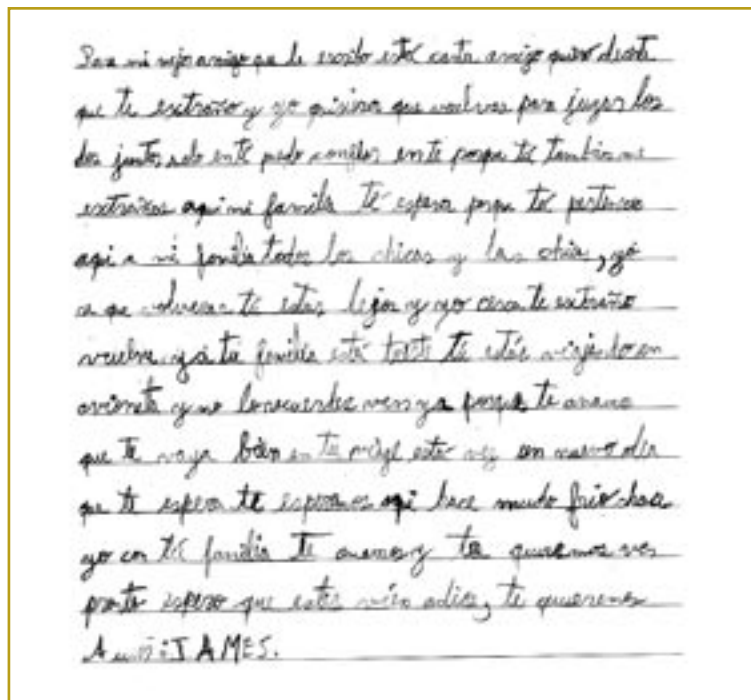 Para mi mejor amigo que le escribo está carta amigo quiero decirte
que te extraño y yo quisiera que vuelvas para jugar los
dos juntos solo en té puedo confiar en te porque té también me
extrañas aqui mi familia té espera porque té
aqui a mi familia todos los chicos y las , yó
se que volveras té estas lejos y yo cerca te extraño
vuelve ya tu familia está té estás viajando en
avioneta y no ven ya porque te amamos
que té vaya bien en tu esta vez un nuevo dia
que té espera te esperamos aqi hace mucho frio
yo con tú familia te amamos y te queremos ver
pronto espero que estes vién adios, te queremos
JAMES.